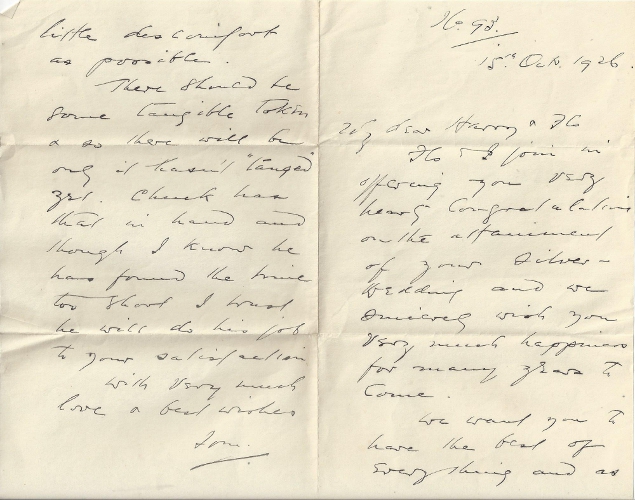 No. 93.
15th Oct. 1926.
My dear Harry & Flo
Flo & I join in
offering you very
hearty Congratulations
on the attainment
of your Silver-
Wedding and we
sincerely wish you
very much happiness
for many years to
Come.
We want you to
have the best of
Everything and as
little discomfort
as possible.
There should be
some tangible token
& so there will be
only it hasn't "tanged"
yet. Chuck has
that in hand and
though I know he
has found the time
too short I trust
he will do his job
to your satisfaction
with very much
love & best wishes
Tom.